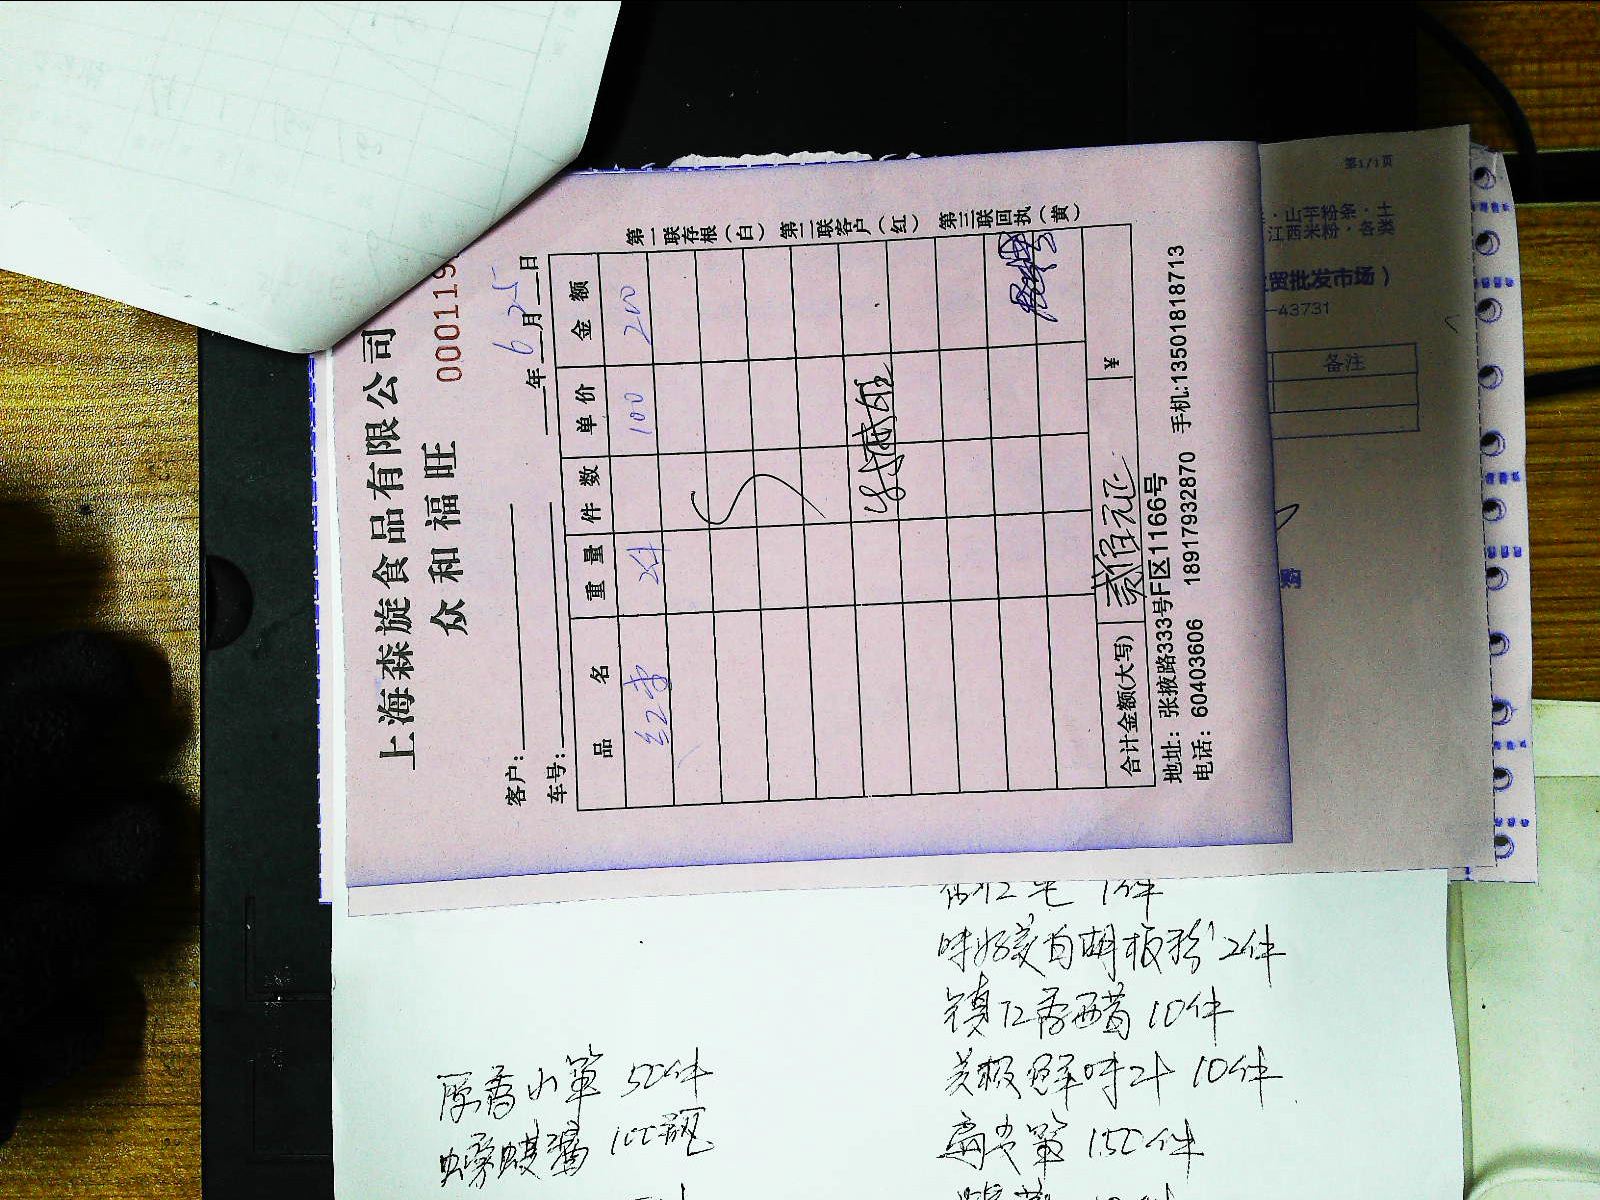 上海森旋食品有限公司
众和福旺
000119
客户:
车号:
年 6 月 25 日
品 名 重 量 件 数 单 价 金 额
红李 2件 100 200
合计金额(大写) 贰佰元正 ¥
地址: 张掖路333号F区1166号
电话: 60403606 18917932870 手机:13501818713
第一联存根(白) 第二联客户(红) 第三联回执(黄)
第1/1页
山芋粉条·土
江西米粉·各类
贸批发市场)
-43731
备注
购
1件
味好美白胡椒粉 2件
镇江香醋 10件
美极鲜味汁 10件
扁尖笋 150件
原香小笋 50件
螃蟹酱 100瓶